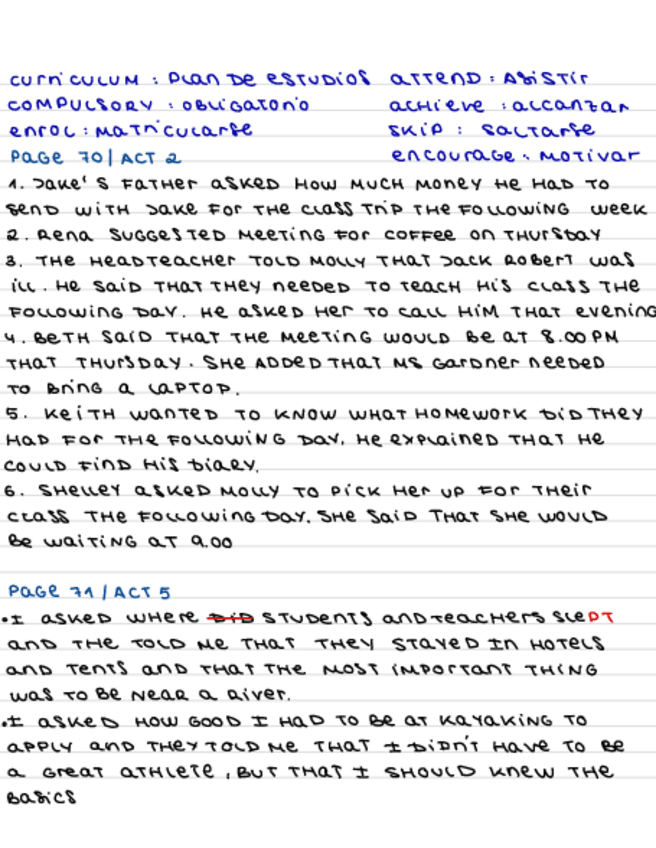 curriculum : Plan de estudios
attend : Asistir
compulsory : obligatorio
achieve : alcanzar
enrol : matricularse
skip : saltarse
Page 70 / Act 2
encourage : motivar
1. Jake's father asked how much money he had to
send with Jake for the class trip the following week
2. Rena suggested meeting for coffee on Thursday
3. The headteacher told Molly that Jack Robert was
ill. He said that they needed to teach his class the
following day. He asked her to call him that evening
4. Beth said that the meeting would be at 8.00 PM
that Thursday. She added that Ms Gardner needed
to bring a laptop.
5. Keith wanted to know what homework did they
had for the following day. He explained that he
could find his diary.
6. Shelley asked Molly to pick her up for their
class the following day. She said that she would
be waiting at 9.00
Page 71 / Act 5
• I asked where did students and teachers slept
and the told me that they stayed in hotels
and tents and that the most important thing
was to be near a river.
• I asked how good I had to be at kayaking to
apply and they told me that I didn't have to be
a great athlete, but that I should knew the
basics